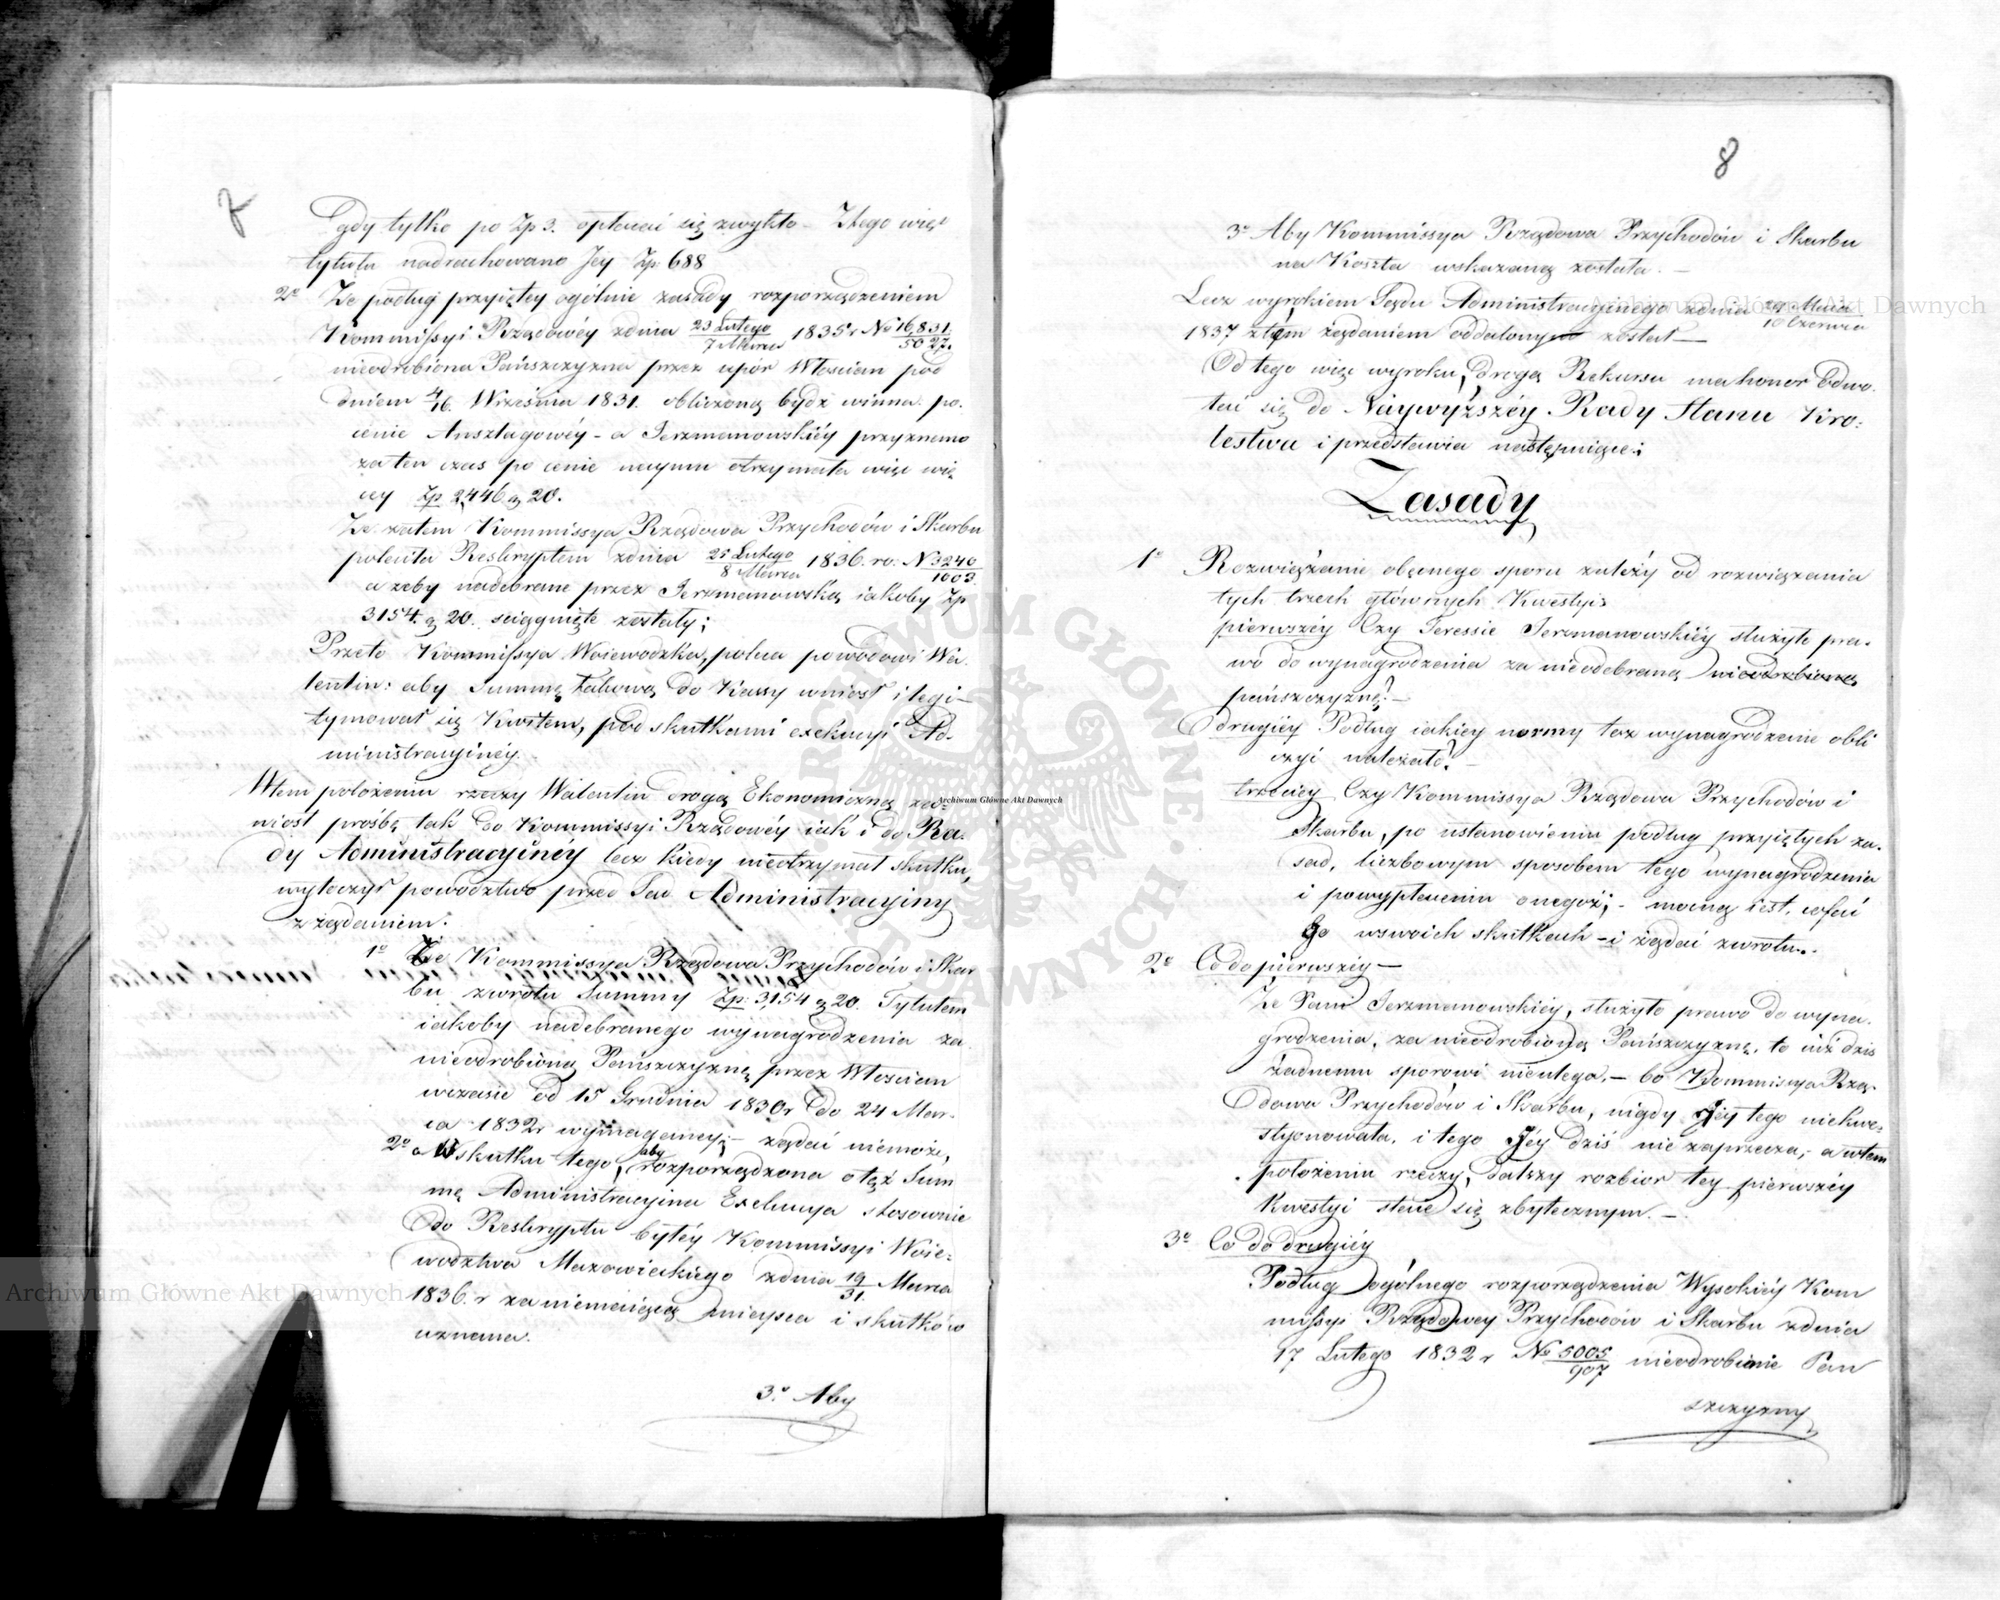 7
gdy tylko po Zp 3. opłacać się zwykło – Ztego więc
tytułu nadrachowano Jey Zp 688
2o Że podług przyiętey ogólnie zasady rozporządzeniem
Kommissyi Rządowéy zdnia 23 Lutego/7 Marca 1835 r No 16831/5027.
nieodrobiona Pańszczyzna przez upór Włościan pod
dniem 4/16. Września 1831. obliczoną bydź winna po
cenie Anszlagowéy – a Jerzmanowskiéy przyznano
za ten czas po cenie naymu otrzymała więc wię
cey Zp 2,446 g 20.
Że zatem Kommissya Rządowa Przychodów i Skarbu
poleciła Reskryptem zdnia 25 Lutego/8 Marca 1836. ro: N 3240/1003
ażeby nadebrane przez Jerzmanowską iakoby Zp
3154. g 20. ściągnięte zostały;
Przeto Kommissya Woiewodzka, poleca powodowi Wa
lentin: aby Summę takową do Kassy wniosł i legi-
tymował się Kwitem, pod skutkami exekucyi Ad-
ministracyinéy.
Wtem położeniu rzeczy Walentin drogą Ekonomiczną za-
niosł prośbę tak do Kommissyi Rządowéy iak i do Ra-
dy Administracyinéy lecz kiedy nieotrzymał skutku,
wytoczył powództwo przed Sąd Administracyiny
z żądaniem:
1o Że Kommissya Rządowa Przychodów i Skar
bu zwrotu Summy Zp: 3154 g 20. Tytułem
iakoby nadebranego wynagrodzenia za
nieodrobioną Pańszczyznę przez Włościan
wczasie od 15 Grudnia 1830 r do 24 Mar-
ca 1832 r wymaganey; – żądać niemoże,
2o a Wskutku tego, aby rozporządzona o też Sum
mę Administracyina Exekucya stosownie
do Reskryptu byłéy Kommissyi Woie-
wodztwa Mazowieckiego zdnia 19/31. Marca
1836. r za niemaiącą mieysca i skutków
uznana.
3o Aby
8
3o Aby Kommissya Rządowa Przychodów i Skarbu
na Koszta wskazaną została. –
Lecz wyrokiem Sądu Administracyinego zdnia 29 Maia/10 Czerwca
1837 z tém żądaniem oddalony został –
Od tego więc wyroku, drogą Rekursu ma honor odwo-
łać się do Naywyższéy Rady Stanu Kro:
lestwa i przedstawia następuiące:
Zasady
1o Rozwiązanie obecnego sporu zależy od rozwiązania
tych trzech głównych Kwestyi:
pierwszéy Czy Teressie Jerzmanowskiéy służyło pra-
wo do wynagrodzenia za nieodebraną nieodrobioną
pańszczyznę? –
drugiéy Podług iakiey normy toż wynagrodzenie obli
czyć należało? –
trzeciey Czy Kommissya Rządowa Przychodów i
Skarbu, po ustanowieniu podług przyiętych za-
sad, liczbowym sposobem tego wynagrodzenia
i powypłaceniu onegoż; – mocną iest, cofać
go wswoich skutkach – i żądać zwrotu..
2o Co do pierwszéy –
Że Pani Jerzmanowskiéy, służyło prawo do wyna-
grodzenia, za nieodrobioną Pańszczyznę, to iuż dziś
żadnemu sporowi nieulega, – bo Kommissya Rzą-
dowa Przychodów i Skarbu, nigdy Jéy tego niekwe-
styonowała, i tego Jéy dziś nie zaprzecza, – a wtem
położeniu rzeczy, dalszy rozbior tey pierwszéy
Kwestyi staie się zbytecznym. –
3o Co do drugiéy
Podług ogólnego rozporządzenia Wysokiéy Kom
missyi Rządowey Przychodów i Skarbu zdnia
17 Lutego 1832 r No 5005/907 nieodrobienie Pan
szczyzny
Archiwum Główne Akt Dawnych
Archiwum Główne Akt Dawnych
Archiwum Główne Akt Dawnych
ARCHIWUM GŁÓWNE AKT DAWNYCH